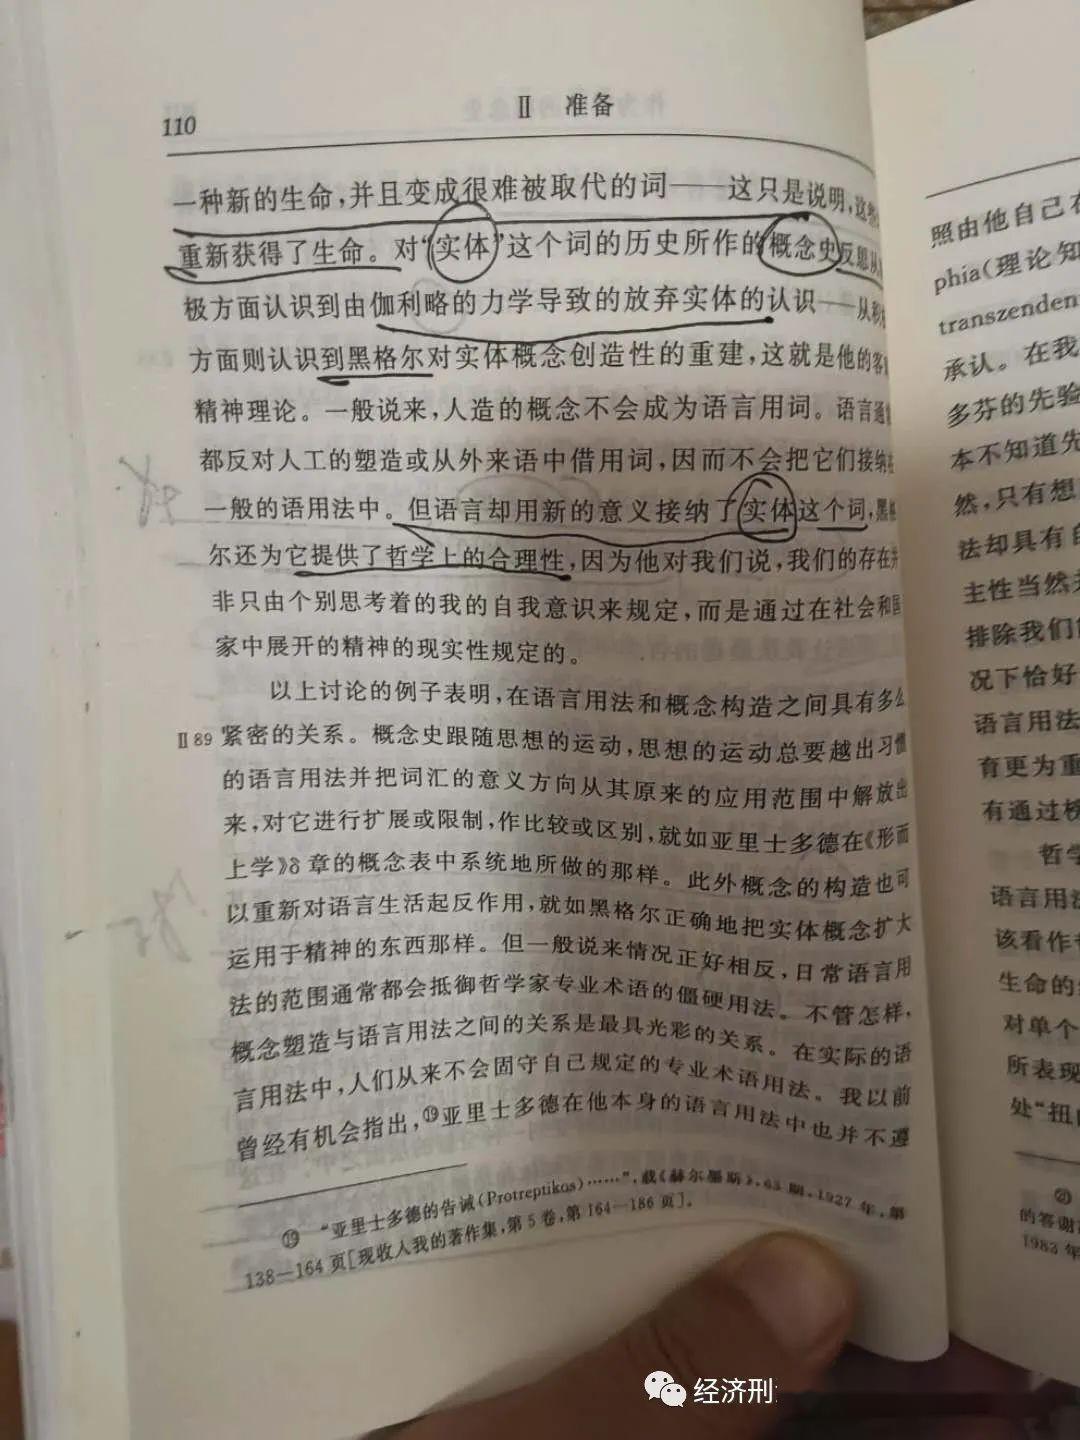 110
Ⅱ 准备
一种新的生命,并且变成很难被取代的词——这只是说明,这
重新获得了生命。对“实体”这个词的历史所作的概念史反思从
极方面认识到由伽利略的力学导致的放弃实体的认识——从积
方面则认识到黑格尔对实体概念创造性的重建,这就是他的客
精神理论。一般说来,人造的概念不会成为语言用词。语言通
都反对人工的塑造或从外来语中借用词,因而不会把它们接纳
一般的语用法中。但语言却用新的意义接纳了实体这个词,黑
尔还为它提供了哲学上的合理性,因为他对我们说,我们的存在并
非只由个别思考着的我的自我意识来规定,而是通过在社会和国
家中展开的精神的现实性规定的。
以上讨论的例子表明,在语言用法和概念构造之间具有多么
Ⅱ89 紧密的关系。概念史跟随思想的运动,思想的运动总要越出习惯
的语言用法并把词汇的意义方向从其原来的应用范围中解放出
来,对它进行扩展或限制,作比较或区别,就如亚里士多德在《形而
上学》δ章的概念表中系统地所做的那样。此外概念的构造也可
以重新对语言生活起反作用,就如黑格尔正确地把实体概念扩大
运用于精神的东西那样。但一般说来情况正好相反,日常语言用
法的范围通常都会抵御哲学家专业术语的僵硬用法。不管怎样,
概念塑造与语言用法之间的关系是最具光彩的关系。在实际的语
言用法中,人们从来不会固守自己规定的专业术语用法。我以前
曾经有机会指出,⑲亚里士多德在他本身的语言用法中也并不遵
⑲ “亚里士多德的告诫(Protreptikos)……”,载《赫尔墨斯》,63期,1927年,第
138—164页[现收入我的著作集,第5卷,第164—186页]。
照由他自己在
phia(理论知
transzenden
承认。在我
多芬的先验
本不知道先
然,只有想
法却具有自
主性当然
排除我们
况下恰好
语言用法
育更为重
有通过
哲学
语言用法
该看作
生命的
对单个
所表现
处“扭
㉑
的答谢
1983年
经济刑